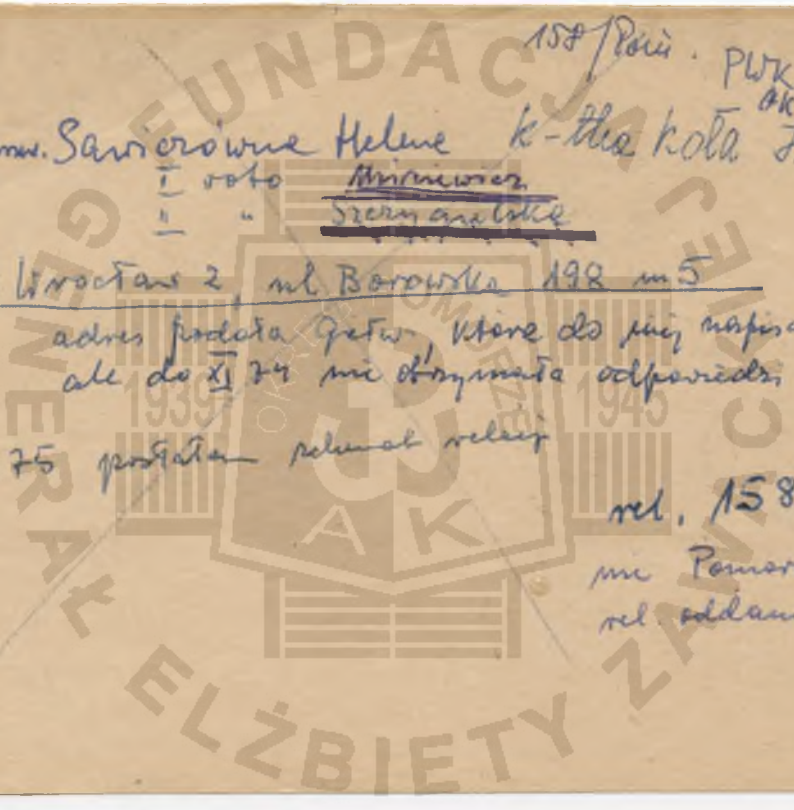 158/Pom. PWK
AK
Sawicrówna Helena k-tka koła
I voto
II " Szczycielska
Wrocław 2, ul Borowska 198 m 5
adres podała która do niej napisa
ale do XI 74 nie otrzymała odpowiedzi
75 posłałam schemat relacji
rel. 158
nie Pomor
rel. oddan
FUNDACJA GENERAŁ ELŻBIETY ZAWACKIEJ
OKRĘG POMORZE
1939 1945
AK